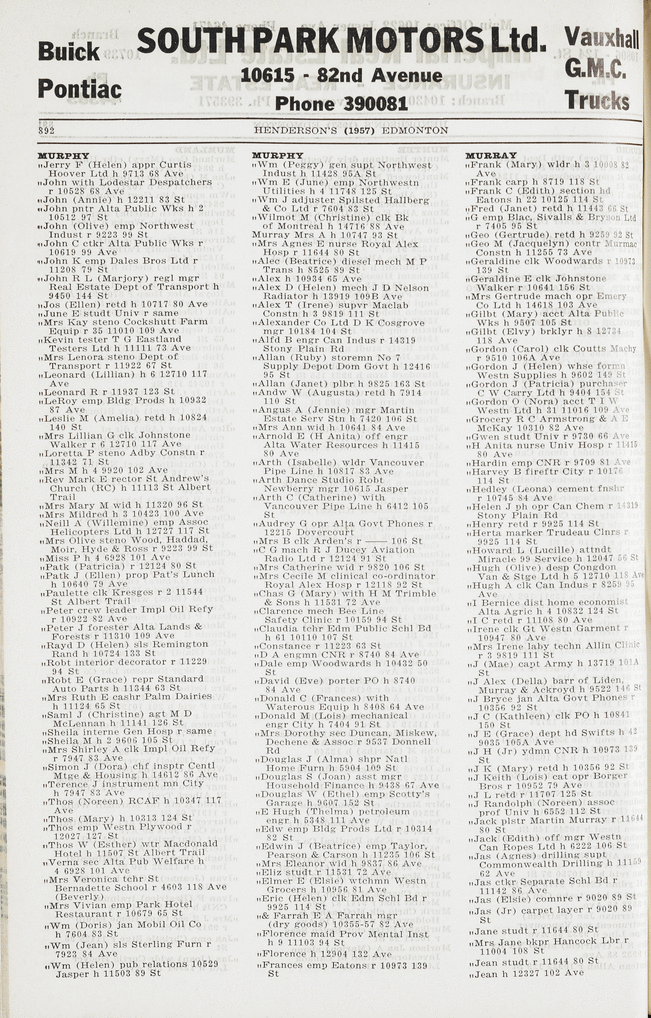 Buick
Pontiac
SOUTH PARK MOTORS Ltd.
10615 - 82nd Avenue
Phone 390081
Vauxhall
G.M.C.
Trucks
892
HENDERSON'S (1957) EDMONTON
MURPHY
„Jerry F (Helen) appr Curtis
Hoover Ltd h 9713 68 Ave
„John with Lodestar Despatchers
r 10528 68 Ave
„John (Annie) h 12211 83 St
„John pntr Alta Public Wks h 2
10512 97 St
„John (Olive) emp Northwest
Indust r 9223 99 St
„John C ctkr Alta Public Wks r
10619 99 Ave
„John K emp Dales Bros Ltd r
11208 79 St
„John R L (Marjory) regl mgr
Real Estate Dept of Transport h
9450 144 St
„Jos (Ellen) retd h 10717 80 Ave
„June E studt Univ r same
„Mrs Kay steno Cockshutt Farm
Equip r 35 11010 109 Ave
„Kevin tester T G Eastland
Testers Ltd h 11111 73 Ave
„Mrs Lenora steno Dept of
Transport r 11922 67 St
„Leonard (Lillian) h 6 12710 117
Ave
„Leonard R r 11937 123 St
„LeRoy emp Bldg Prods h 10932
87 Ave
„Leslie M (Amelia) retd h 10824
140 St
„Mrs Lillian G clk Johnstone
Walker r 6 12710 117 Ave
„Loretta P steno Adby Constn r
11342 71 St
„Mrs M h 4 9920 102 Ave
„Rev Mark E rector St Andrew's
Church (RC) h 11113 St Albert
Trail
„Mrs Mary M wid h 11320 96 St
„Mrs Mildred h 3 10423 100 Ave
„Neill A (Willemine) emp Assoc
Helicopters Ltd h 12727 117 St
„Mrs Olive steno Wood, Haddad,
Moir, Hyde & Ross r 9223 99 St
„Miss P h 4 6928 101 Ave
„Patk (Patricia) r 12124 80 St
„Patk J (Ellen) prop Pat's Lunch
h 10640 79 Ave
„Paulette clk Kresges r 2 11544
St Albert Trail
„Peter crew leader Impl Oil Refy
r 10922 82 Ave
„Peter J forester Alta Lands &
Forests r 11310 109 Ave
„Rayd D (Helen) sls Remington
Rand h 10724 133 St
„Robt interior decorator r 11229
94 St
„Robt E (Grace) repr Standard
Auto Parts h 11344 63 St
„Mrs Ruth E cashr Palm Dairies
h 11124 65 St
„Saml J (Christine) agt M D
McLennan h 11141 126 St
„Sheila interne Gen Hosp r same
„Sheila M h 2 9606 105 St
„Mrs Shirley A clk Impl Oil Refy
r 7947 83 Ave
„Simon J (Dora) chf insptr Centl
Mtge & Housing h 14612 86 Ave
„Terence J instrument mn City
h 7947 83 Ave
„Thos (Noreen) RCAF h 10347 117
Ave
„Thos (Mary) h 10313 124 St
„Thos emp Westn Plywood r
12027 127 St
„Thos W (Esther) wtr Macdonald
Hotel h 11507 St Albert Trail
„Verna sec Alta Pub Welfare h
4 6928 101 Ave
„Mrs Veronica tchr St
Bernadette School r 4603 118 Ave
(Beverly)
„Mrs Vivian emp Park Hotel
Restaurant r 10679 65 St
„Wm (Doris) jan Mobil Oil Co
h 7604 83 St
„Wm (Jean) sls Sterling Furn r
7923 84 Ave
„Wm (Helen) pub relations 10529
Jasper h 11503 89 St
MURPHY
„Wm (Peggy) gen supt Northwest
Indust h 11428 95A St
„Wm E (June) emp Northwestn
Utilities h 4 11748 125 St
„Wm J adjuster Spilsted Hallberg
& Co Ltd r 7604 83 St
„Wilmot M (Christine) clk Bk
of Montreal h 14716 88 Ave
Murray Mrs A h 10747 93 St
„Mrs Agnes E nurse Royal Alex
Hosp r 11644 80 St
„Alec (Beatrice) diesel mech M P
Trans h 8525 89 St
„Alex h 10934 65 Ave
„Alex D (Helen) mech J D Nelson
Radiator h 13919 109B Ave
„Alex T (Irene) supvr Maclab
Constn h 3 9819 111 St
„Alexander Co Ltd D K Cosgrove
mgr 10184 104 St
„Alfd B engr Can Indus r 14319
Stony Plain Rd
„Allan (Ruby) storemn No 7
Supply Depot Dom Govt h 12416
95 St
„Allan (Janet) plbr h 9825 163 St
„Andw W (Augusta) retd h 7914
110 St
„Angus A (Jennie) mgr Martin
Estate Serv Stn h 7420 106 St
„Mrs Ann wid h 10641 84 Ave
„Arnold E (H Anita) off engr
Alta Water Resources h 11415
80 Ave
„Arth (Isabelle) wldr Vancouver
Pipe Line h 10817 83 Ave
„Arth Dance Studio Robt
Newberry mgr 10615 Jasper
„Arth C (Catherine) with
Vancouver Pipe Line h 6412 105
St
„Audrey G opr Alta Govt Phones r
12215 Dovercourt
„Mrs B clk Arden's r —— 106 St
„C G mach R J Ducey Aviation
Radio Ltd r 12124 91 St
„Mrs Catherine wid r 9820 106 St
„Mrs Cecile M clinical co-ordinator
Royal Alex Hosp r 12118 92 St
„Chas G (Mary) with H M Trimble
& Sons h 11531 72 Ave
„Clarence mech Bee Line
Safety Clinic r 10159 94 St
„Claudia tchr Edm Public Schl Bd
h 61 10110 107 St
„Constance r 11223 63 St
„D A engmn CNR r 8740 84 Ave
„Dale emp Woodwards h 10432 50
St
„David (Eve) porter PO h 8740
84 Ave
„Donald C (Frances) with
Waterous Equip h 8408 64 Ave
„Donald M (Lois) mechanical
engr City h 7404 91 St
„Mrs Dorothy sec Duncan, Miskew,
Dechene & Assoc r 9537 Donnell
Rd
„Douglas J (Alma) shpr Natl
Home Furn h 5904 109 St
„Douglas S (Joan) asst mgr
Household Finance h 9438 67 Ave
„Douglas W (Ethel) emp Scotty's
Garage h 9607 152 St
„E Hugh (Thelma) petroleum
engr h 5348 111 Ave
„Edw emp Bldg Prods Ltd r 10314
82 St
„Edwin J (Beatrice) emp Taylor,
Pearson & Carson h 11235 106 St
„Mrs Eleanor wid h 9837 86 Ave
„Eliz studt r 11531 72 Ave
„Elmer E (Elsie) wtchmn Westn
Grocers h 10956 81 Ave
„Eric (Helen) clk Edm Schl Bd r
9925 114 St
„& Farrah E A Farrah mgr
(dry goods) 10355-57 82 Ave
„Florence maid Prov Mental Inst
h 9 11103 94 St
„Florence h 12904 132 Ave
„Frances emp Eatons r 10973 139
St
MURRAY
„Frank (Mary) wldr h 3 10008 82
Ave
„Frank carp h 8719 118 St
„Frank C (Edith) section hd
Eatons h 22 10125 114 St
„Fred (Janet) retd h 11443 66 St
„G emp Blac, Sivalls & Bryson Ltd
r 7405 95 St
„Geo (Gertrude) retd h 9259 92 St
„Geo M (Jacquelyn) contr Murmac
Constn h 11255 73 Ave
„Geraldine clk Woodwards r 10973
139 St
„Geraldine E clk Johnstone
Walker r 10641 156 St
„Mrs Gertrude mach opr Emery
Co Ltd h 14618 103 Ave
„Gilbt (Mary) acct Alta Public
Wks h 9507 105 St
„Gilbt (Elvy) brklyr h 8 12734
118 Ave
„Gordon (Carol) clk Coutts Machy
r 9510 106A Ave
„Gordon J (Helen) whse formn
Westn Supplies h 9602 149 St
„Gordon J (Patricia) purchaser
C W Carry Ltd h 9404 154 St
„Gordon O (Nora) acct T I W
Westn Ltd h 31 11016 109 Ave
„Grocery R C Armstrong & A E
McKay 10310 82 Ave
„Gwen studt Univ r 9730 66 Ave
„H Anita nurse Univ Hosp r 11415
80 Ave
„Hardin emp CNR r 9709 81 Ave
„Harvey B fireftr City r 10176
114 St
„Hedley (Leona) cement fnshr
r 10745 84 Ave
„Helen J ph opr Can Chem r 14319
Stony Plain Rd
„Henry retd r 9925 114 St
„Herta marker Trudeau Clnrs r
9925 114 St
„Howard L (Lucille) attndt
Miracle 99 Service h 12047 56 St
„Hugh (Olive) desp Congdon
Van & Stge Ltd h 5 12710 118 Ave
„Hugh A clk Can Indus r 8259 95
Ave
„I Bernice dist home economist
Alta Agric h 4 10832 124 St
„I C retd r 11108 80 Ave
„Irene clk Gt Westn Garment r
10947 80 Ave
„Mrs Irene laby techn Allin Clinic
r 3 9819 111 St
„J (Mae) capt Army h 13719 101A
St
„J Alex (Della) barr of Liden,
Murray & Ackroyd h 9522 146 St
„J Bryce jan Alta Govt Phones r
10356 92 St
„J C (Kathleen) clk PO h 10841
150 St
„J E (Grace) dept hd Swifts h 42
9035 105A Ave
„J H (Jr) ydmn CNR h 10973 139
St
„J K (Mary) retd h 10356 92 St
„J Keith (Lois) cat opr Borger
Bros r 10952 79 Ave
„J L retd r 11707 125 St
„J Randolph (Noreen) assoc
prof Univ h 6552 112 St
„Jack plstr Martin Murray r 11644
80 St
„Jack (Edith) off mgr Westn
Can Ropes Ltd h 6222 106 St
„Jas (Agnes) drilling supt
Commonwealth Drilling h 11159
62 Ave
„Jas ctkr Separate Schl Bd r
11142 86 Ave
„Jas (Elsie) comnre r 9020 89 St
„Jas (Jr) carpet layer r 9020 89
St
„Jane studt r 11644 80 St
„Mrs Jane bkpr Hancock Lbr r
11004 108 St
„Jean studt r 11644 80 St
„Jean h 12327 102 Ave